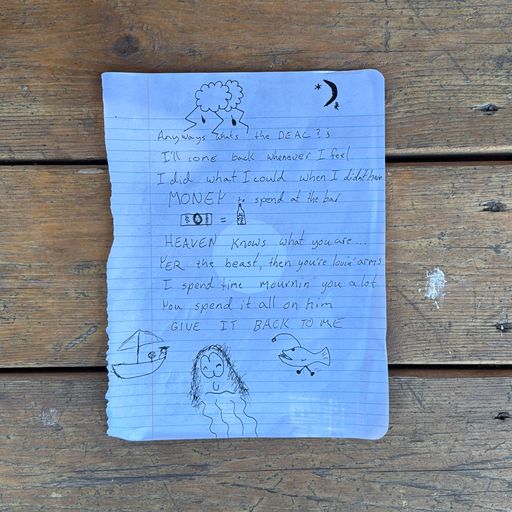 Anyways whats the DEAL? 
I'll come back whenever I feel
I did what I could when I didn't have
MONEY to spend at the bar
$ $ =
HEAVEN knows what you are...
YER the beast, then you're lovin' arms
I spend time mournin you a lot
You spend it all on him
GIVE IT BACK TO ME